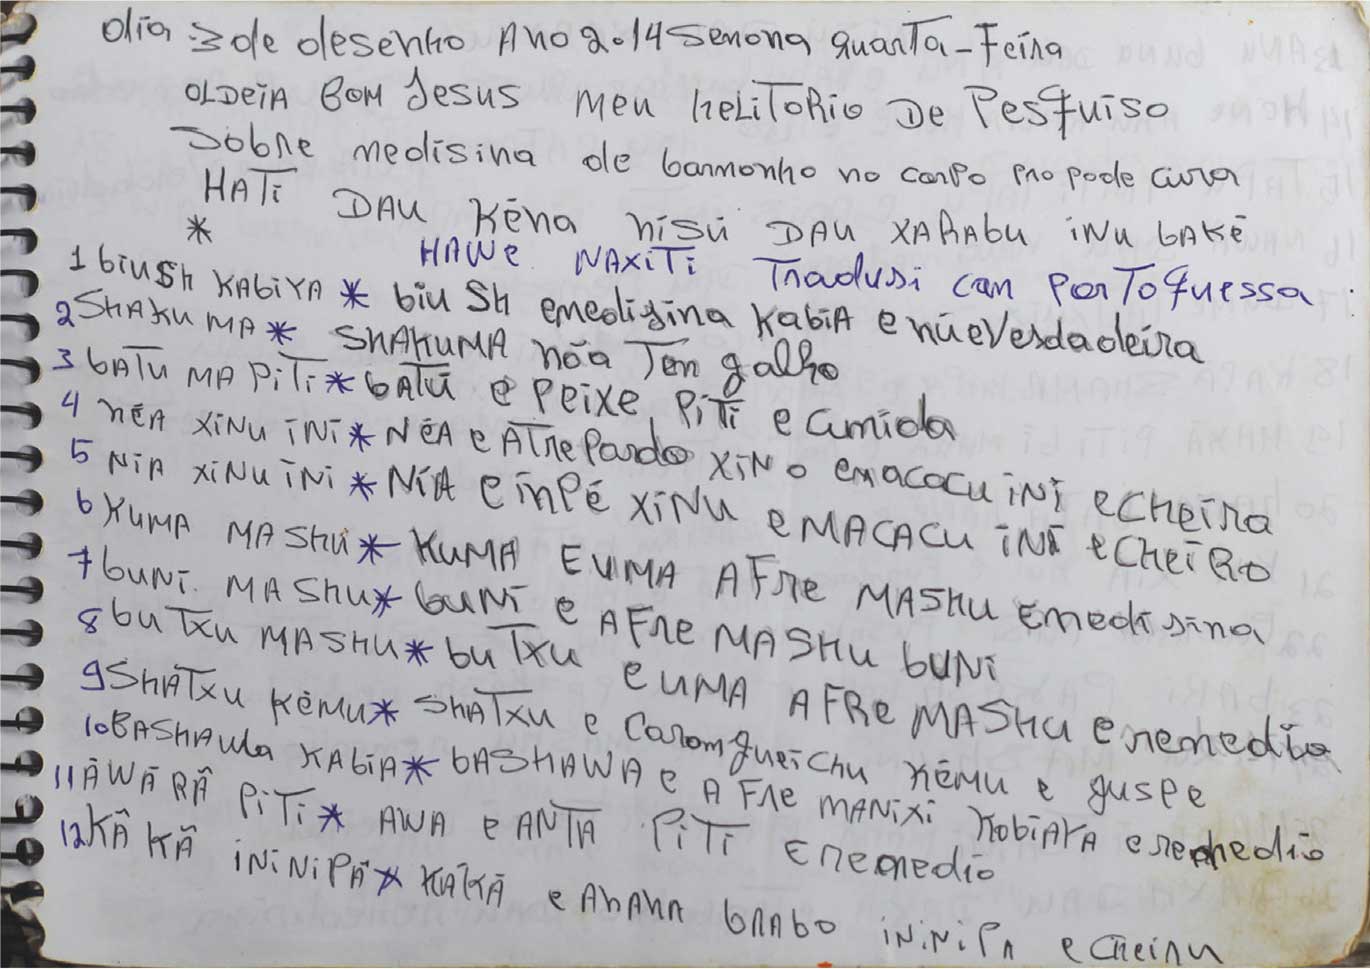 dia 3 de desenho Ano 2.014 Semona quarTa-Feira
OLDEiA BOM Jesus meu heLiTORio De PesquiSo
Sobre medisina de banmonho no corpo pro pode cura
HATi DAU Kēna hisū DAU XARAbu iNu bAKē
* HAWe NAXiTi Tradusi can PorToguessa.
1 biuSh KAbiYA * biu Sh emedisina KabiA e núeVesdadeira
2 SHAKU MA * SHAKUMA nóa Ten galho
3 bATū MA PiTi * bATŪ e Peixe PiTi e Cumida
4 nēA XiNu iNi * NēA e ATrePardo XiN o emacacu iNi e Cheira
5 NiA XiNu iNi * NíA e inPé XiNu eMACACU iNi e CheiRo
6 KUMA MAShu * KUMA EUMA AFre MAShu Emedisina
7 buNi MAShu * buNi e AFre MASHu buNi
8 bu TXu MAShu * bu TXu e UMA AFRe MASHu e remedio
9 ShATXu Kēmu * ShATXu e Caromgueichu Kēmu e guspe
10 BAShAwa KAbiA * bASHAWA e AFre MANiXi KobiAYA e remedio
11 ĀWĀ RÃ PiTi * AWA e ANTA PiTi E remedio
12 KÃ KÃ iNiNiPÃ * KÃKÃ e AbAhA brAbo iNiNiPA e Cheiru